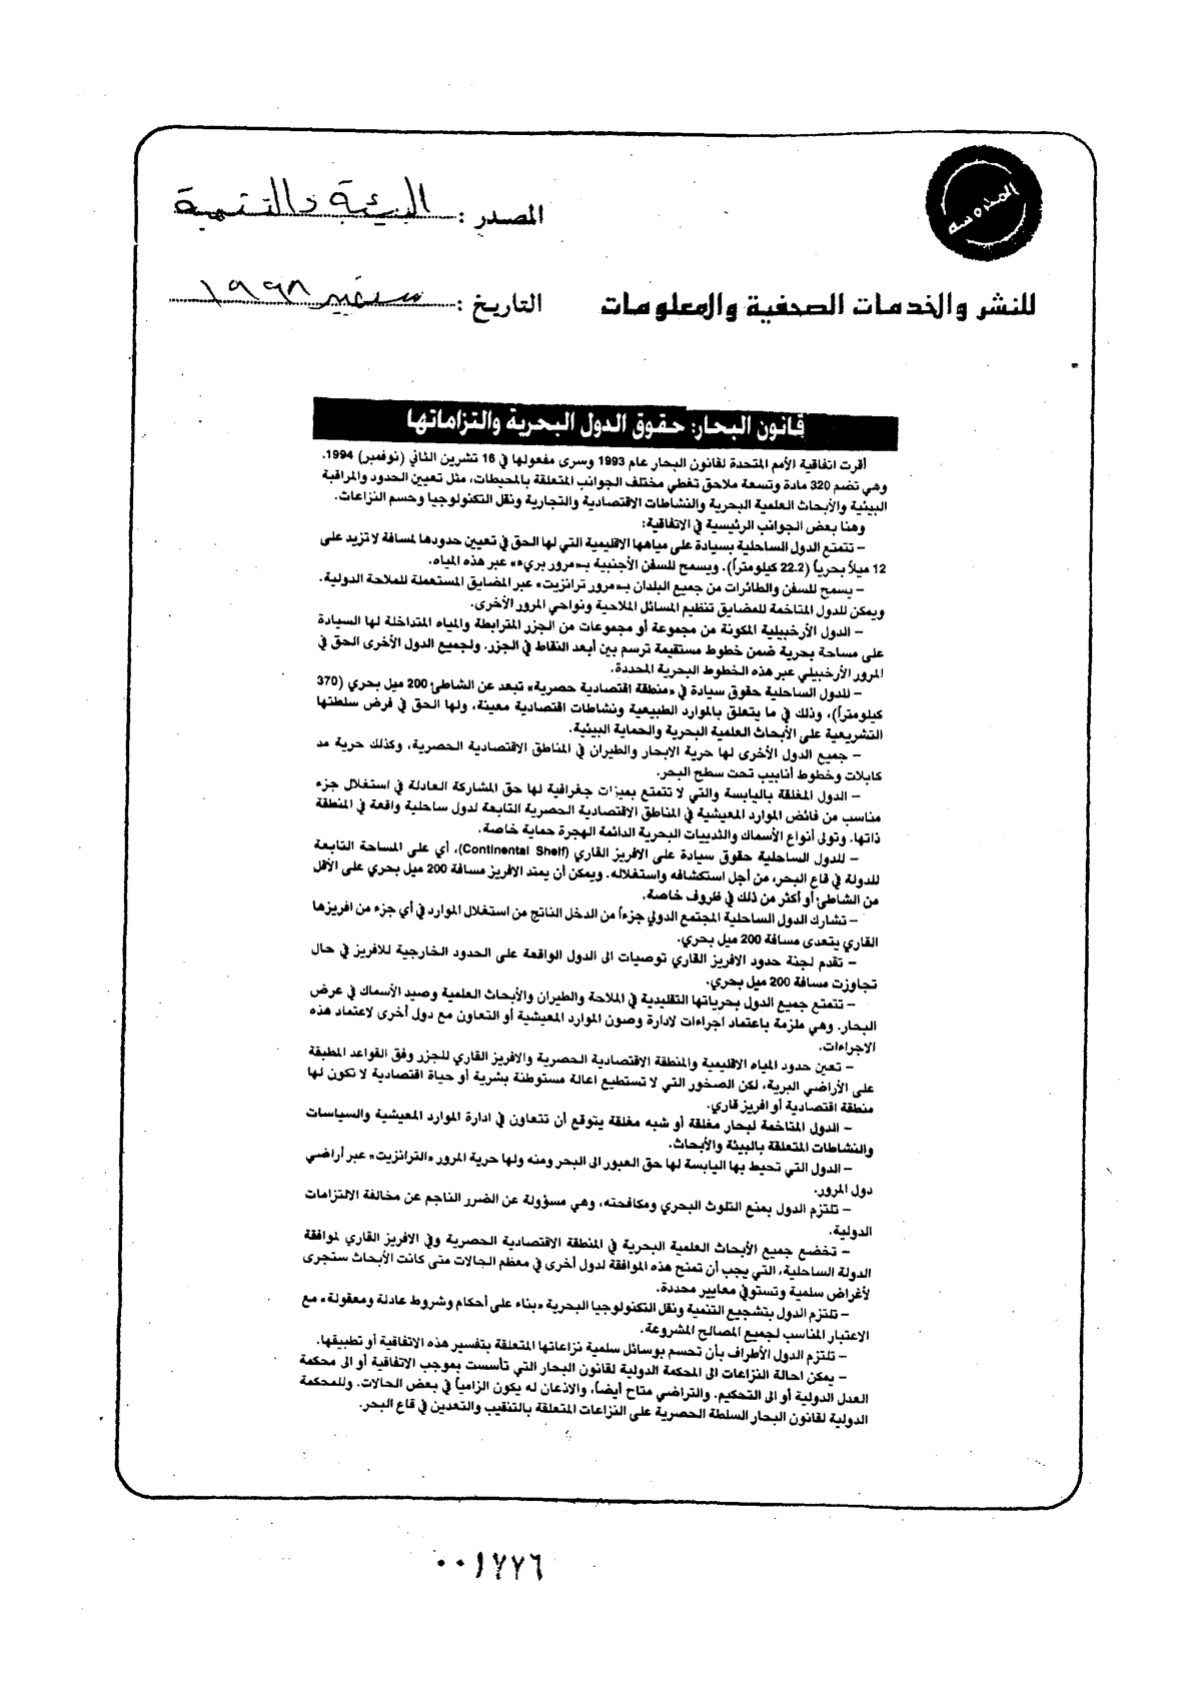 المدروسة
المصدر : البيئة والتنمية
للنشر والخدمات الصحفية والمعلومات
التاريخ : سبتمبر ١٩٩٨
قانون البحار: حقوق الدول البحرية والتزاماتها
أقرت اتفاقية الأمم المتحدة لقانون البحار عام 1993 وسرى مفعولها في 16 تشرين الثاني (نوفمبر) 1994.
وهي تضم 320 مادة وتسعة ملاحق تغطي مختلف الجوانب المتعلقة بالمحيطات، مثل تعيين الحدود والمراقبة
البيئية والأبحاث العلمية البحرية والنشاطات الاقتصادية والتجارية ونقل التكنولوجيا وحسم النزاعات.
وهنا بعض الجوانب الرئيسية في الاتفاقية:
– تتمتع الدول الساحلية بسيادة على مياهها الاقليمية التي لها الحق في تعيين حدودها لمسافة لا تزيد على
12 ميلاً بحرياً (22.2 كيلومتراً). ويسمح للسفن الأجنبية بـ«مرور بريء» عبر هذه المياه.
– يسمح للسفن والطائرات من جميع البلدان بـ«مرور ترانزيت» عبر المضايق المستعملة للملاحة الدولية.
ويمكن للدول المتاخمة للمضايق تنظيم المسائل الملاحية ونواحي المرور الأخرى.
– الدول الأرخبيلية المكونة من مجموعة أو مجموعات من الجزر المترابطة والمياه المتداخلة لها السيادة
على مساحة بحرية ضمن خطوط مستقيمة ترسم بين أبعد النقاط في الجزر. ولجميع الدول الأخرى الحق في
المرور الأرخبيلي عبر هذه الخطوط البحرية المحددة.
– للدول الساحلية حقوق سيادة في «منطقة اقتصادية حصرية» تبعد عن الشاطئ 200 ميل بحري (370
كيلومتراً)، وذلك في ما يتعلق بالموارد الطبيعية ونشاطات اقتصادية معينة، ولها الحق في فرض سلطتها
التشريعية على الأبحاث العلمية البحرية والحماية البيئية.
– جميع الدول الأخرى لها حرية الإبحار والطيران في المناطق الاقتصادية الحصرية، وكذلك حرية مد
كابلات وخطوط أنابيب تحت سطح البحر.
– الدول المغلقة باليابسة والتي لا تتمتع بميزات جغرافية لها حق المشاركة العادلة في استغلال جزء
مناسب من فائض الموارد المعيشية في المناطق الاقتصادية الحصرية التابعة لدول ساحلية واقعة في المنطقة
ذاتها. وتولى أنواع الأسماك والثدييات البحرية الدائمة الهجرة حماية خاصة.
– للدول الساحلية حقوق سيادة على الافريز القاري (Continental Shelf)، أي على المساحة التابعة
للدولة في قاع البحر، من أجل استكشافه واستغلاله. ويمكن أن يمتد الافريز مسافة 200 ميل بحري على الأقل
من الشاطئ أو أكثر من ذلك في ظروف خاصة.
– تشارك الدول الساحلية المجتمع الدولي جزءاً من الدخل الناتج من استغلال الموارد في أي جزء من افريزها
القاري يتعدى مسافة 200 ميل بحري.
– تقدم لجنة حدود الافريز القاري توصيات الى الدول الواقعة على الحدود الخارجية للافريز في حال
تجاوزت مسافة 200 ميل بحري.
– تتمتع جميع الدول بحرياتها التقليدية في الملاحة والطيران والأبحاث العلمية وصيد الأسماك في عرض
البحار. وهي ملزمة باعتماد اجراءات لادارة وصون الموارد المعيشية أو التعاون مع دول أخرى لاعتماد هذه
الاجراءات.
– تعين حدود المياه الاقليمية والمنطقة الاقتصادية الحصرية والافريز القاري للجزر وفق القواعد المطبقة
على الأراضي البرية، لكن الصخور التي لا تستطيع اعالة مستوطنة بشرية أو حياة اقتصادية لا تكون لها
منطقة اقتصادية أو افريز قاري.
– الدول المتاخمة لبحار مغلقة أو شبه مغلقة يتوقع أن تتعاون في ادارة الموارد المعيشية والسياسات
والنشاطات المتعلقة بالبيئة والأبحاث.
– الدول التي تحيط بها اليابسة لها حق العبور الى البحر ومنه ولها حرية المرور «الترانزيت» عبر أراضي
دول المرور.
– تلتزم الدول بمنع التلوث البحري ومكافحته، وهي مسؤولة عن الضرر الناجم عن مخالفة الالتزامات
الدولية.
– تخضع جميع الأبحاث العلمية البحرية في المنطقة الاقتصادية الحصرية وفي الافريز القاري لموافقة
الدولة الساحلية، التي يجب أن تمنح هذه الموافقة لدول أخرى في معظم الحالات متى كانت الأبحاث ستجرى
لأغراض سلمية وتستوفي معايير محددة.
– تلتزم الدول بتشجيع التنمية ونقل التكنولوجيا البحرية «بناء على أحكام وشروط عادلة ومعقولة» مع
الاعتبار المناسب لجميع المصالح المشروعة.
– تلتزم الدول الأطراف بأن تحسم بوسائل سلمية نزاعاتها المتعلقة بتفسير هذه الاتفاقية أو تطبيقها.
– يمكن احالة النزاعات الى المحكمة الدولية لقانون البحار التي تأسست بموجب الاتفاقية أو الى محكمة
العدل الدولية أو الى التحكيم. والتراضي متاح أيضاً، والاذعان له يكون الزامياً في بعض الحالات. وللمحكمة
الدولية لقانون البحار السلطة الحصرية على النزاعات المتعلقة بالتنقيب والتعدين في قاع البحر.
٠٠١٧٧٦